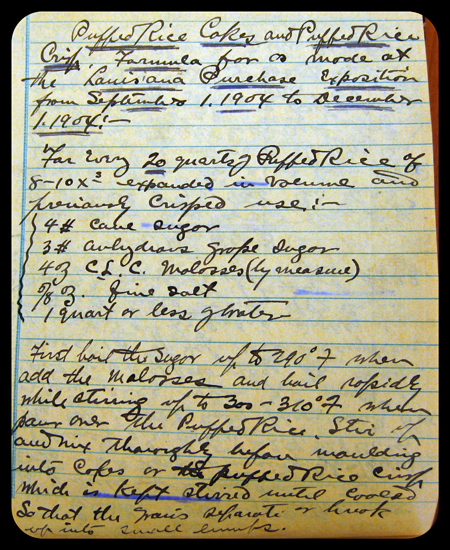 Puffed Rice Cakes and Puffed Rice
Crisp. Formula for as made at
the Louisiana Purchase Exposition
from September 1, 1904 to December
1, 1904:—
For Every 20 quarts of Puffed Rice of
8-10x expanded in volume and
previously crisped use:—
4# cane sugar
3# anhydrous grape sugar
4 oz C.L.C. Molasses (by measure)
oz. fine salt
1 quart or less of water
First boil the sugar up to 290° F when
add the molasses and boil rapidly
while stirring up to 300-310° F when
pour over the Puffed Rice. Stir up
and mix thoroughly before moulding
into Cakes or puffed Rice crisp
which is kept stirred until cooled
so that the grains separate or break
up into small lumps.